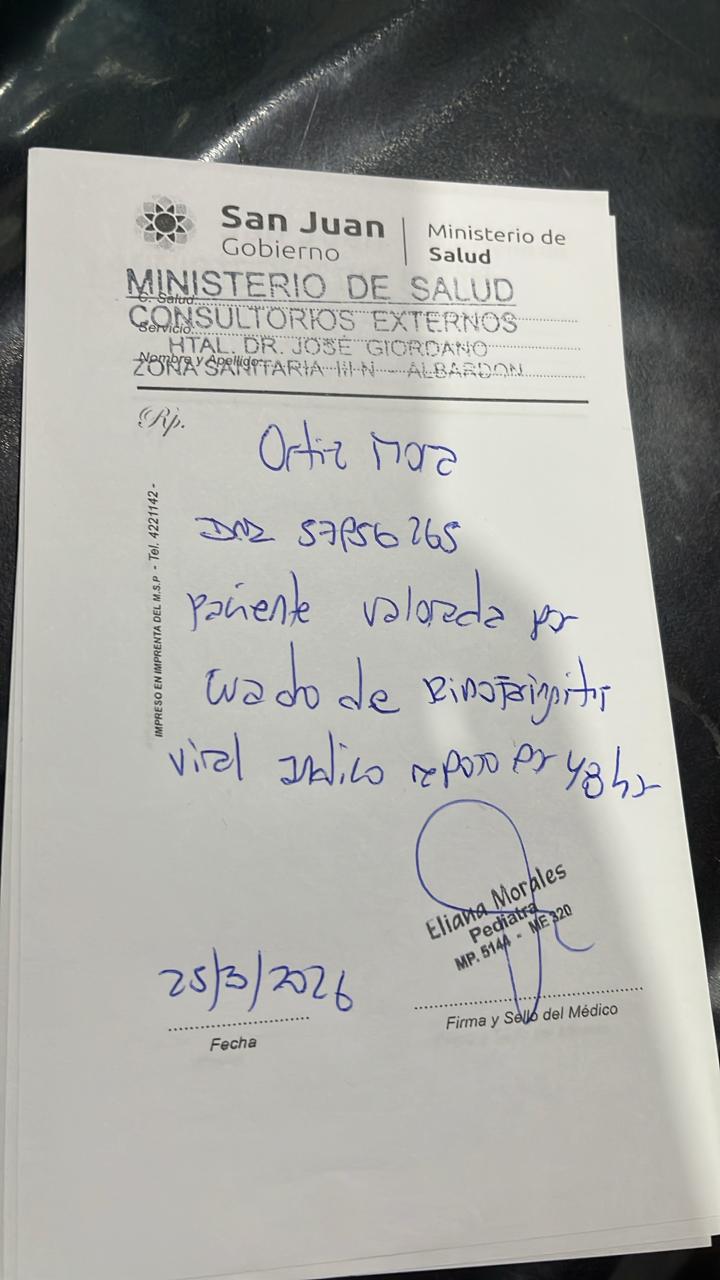 San Juan
Gobierno
Ministerio de
Salud
MINISTERIO DE SALUD
C. Salud
CONSULTORIOS EXTERNOS
Servicio
HTAL. DR. JOSÉ GIORDANO
Nombre y Apellido
ZONA SANITARIA III N - ALBARDON
Rp.
Ortiz Mora
DNI 57956265
paciente valorada por
cuadro de rinofaringitis
viral indico reposo por 48 hs
IMPRESO EN IMPRENTA DEL M.S.P - Tel. 4221142 -
Eliana Morales
Pediatra
MP. 5144 - ME 320
25/3/2026
Fecha
Firma y Sello del Médico